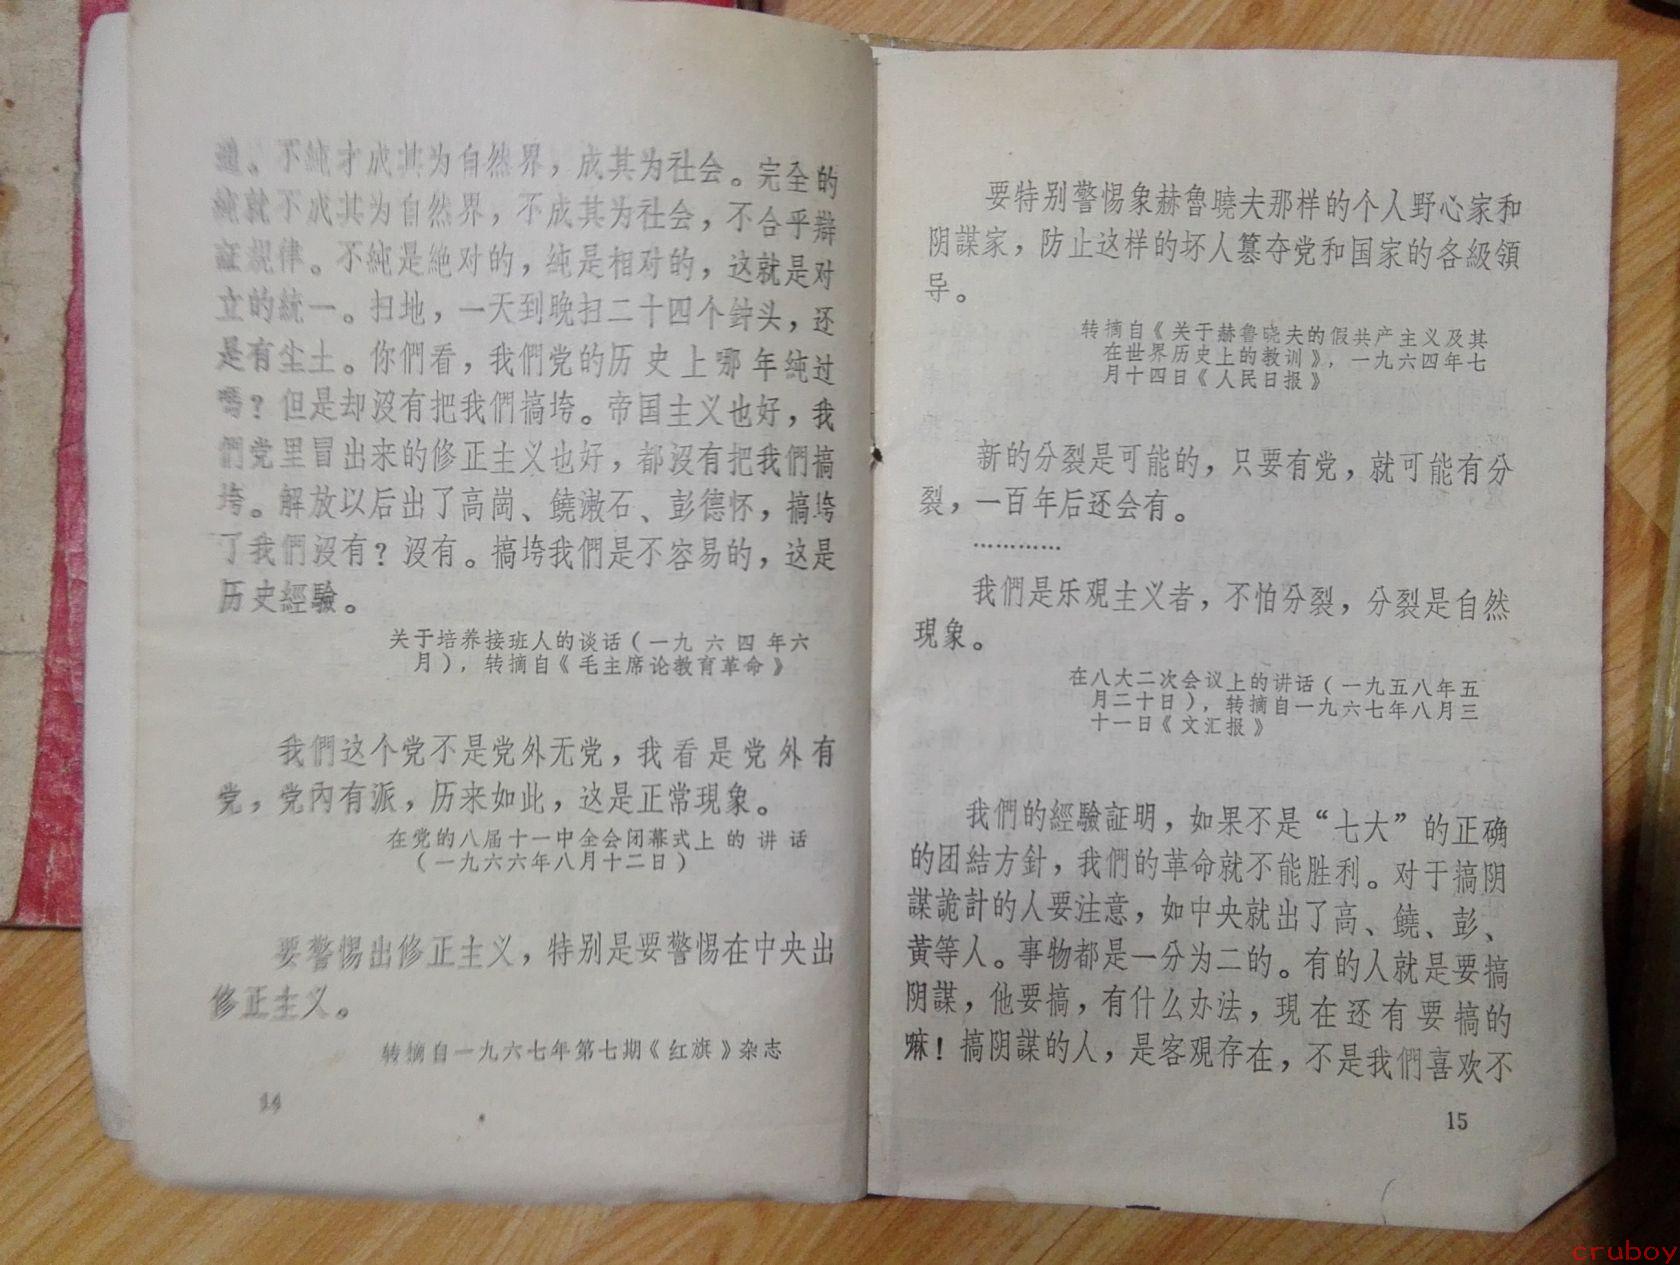 道。不純才成其为自然界，成其为社会。完全的
純就不成其为自然界，不成其为社会，不合乎辯
証規律。不純是絶对的，純是相对的，这就是对
立的統一。扫地，一天到晚扫二十四个鈡头，还
是有尘土。你們看，我們党的历史上哪年純过
嗎？但是却沒有把我們搞垮。帝国主义也好，我
們党里冒出来的修正主义也好，都沒有把我們搞
垮。解放以后出了高崗、饒漱石、彭德怀，搞垮
了我們沒有？沒有。搞垮我們是不容易的，这是
历史經驗。
关于培养接班人的谈话（一九六四年六
月），转摘自《毛主席论教育革命》
我們这个党不是党外无党，我看是党外有
党，党內有派，历来如此，这是正常現象。
在党的八届十一中全会闭幕式上的讲话
（一九六六年八月十二日）
要警惕出修正主义，特别是要警惕在中央出
修正主义。
转摘自一九六七年第七期《红旗》杂志
14
要特别警惕象赫魯曉夫那样的个人野心家和
阴謀家，防止这样的坏人篡夺党和国家的各級領
导。
转摘自《关于赫鲁晓夫的假共产主义及其
在世界历史上的教训》，一九六四年七
月十四日《人民日报》
新的分裂是可能的，只要有党，就可能有分
裂，一百年后还会有。
…………
我們是乐观主义者，不怕分裂，分裂是自然
現象。
在八大二次会议上的讲话（一九五八年五
月二十日），转摘自一九六七年八月三
十一日《文汇报》
我們的經驗証明，如果不是“七大”的正确
的团結方針，我們的革命就不能胜利。对于搞阴
謀詭計的人要注意，如中央就出了高、饒、彭、
黃等人。事物都是一分为二的。有的人就是要搞
阴謀，他要搞，有什么办法，現在还有要搞的
嘛！搞阴謀的人，是客观存在，不是我們喜欢不
15
cruboy